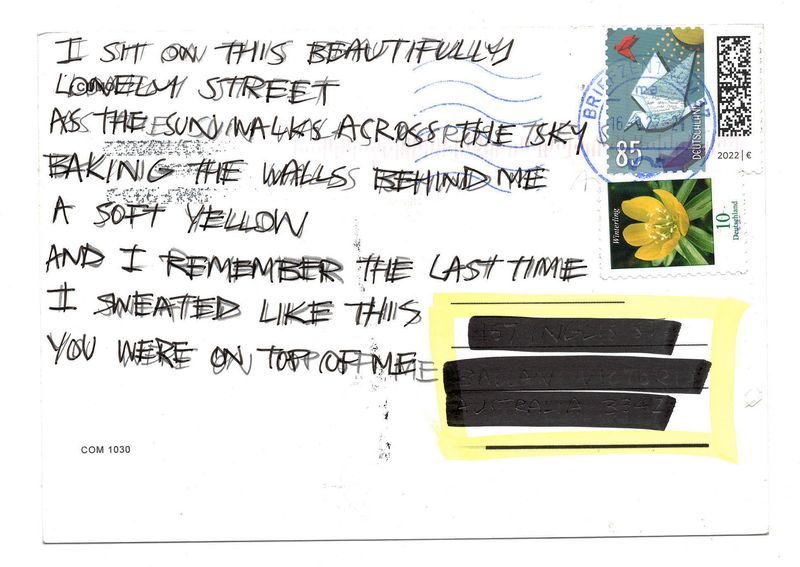 I SIT ON THIS BEAUTIFULLY
LONELY STREET
AS THE SUN WALKS ACROSS THE SKY
BAKING THE WALLS BEHIND ME
A SOFT YELLOW
AND I REMEMBER THE LAST TIME
I SWEATED LIKE THIS
YOU WERE ON TOP OF ME
COM 1030
85
DEUTSCHLAND
2022 | €
Winterling
10
Deutschland